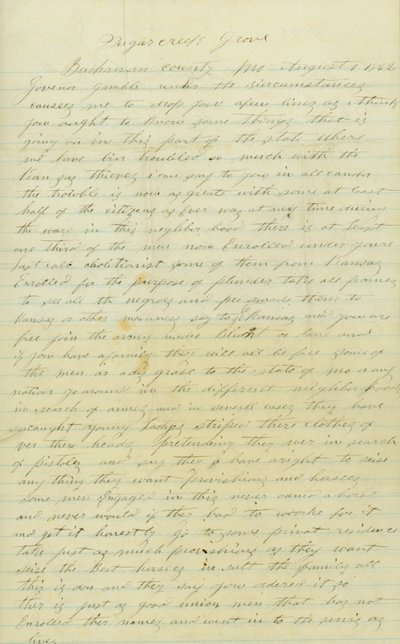 Sugarcreek Grove
Buchanan county Mo August 1 1862
Govenor Gamble under the Surcumstances
causes me to drop you a few lines as i think
you ought to know some things that is
going on in this part of the state where
we have bin troubled so much with the
Kansas thieves i can say to you in all candor
the trouble is now as grate with some at least
half of the citizens as Ever was at any time during
the ware in this neighberhood there is at Least
one third of the men now Enrolled under youre
Last call abolitionist some of them from Kansas
Enrolled for the purpose of plunder take all
to the negroes and them to
Kansas or other say to Kansas and you are
free join the army under or Lane and
if you have a family they will all be free some of
the men is a disgrase to the state of mo or any
nation go around in the different neighberhoods
in search of armes and in severl cases they have
caught young Ladys striped there clothes
over there heads pretending they wer in search
of pistols and say they have aright to seise
any thing they want provishions and horses
Some men Engaged in this never owned a horse
and never would if they had to worke for it
and get it honestly go to some privat residence
take just as much provishions as they want
seise the Best horses insult the family all
this is don and they say you ordered it so
ther is just as good union men that has not
Enrolled ther names and want in to the
lives